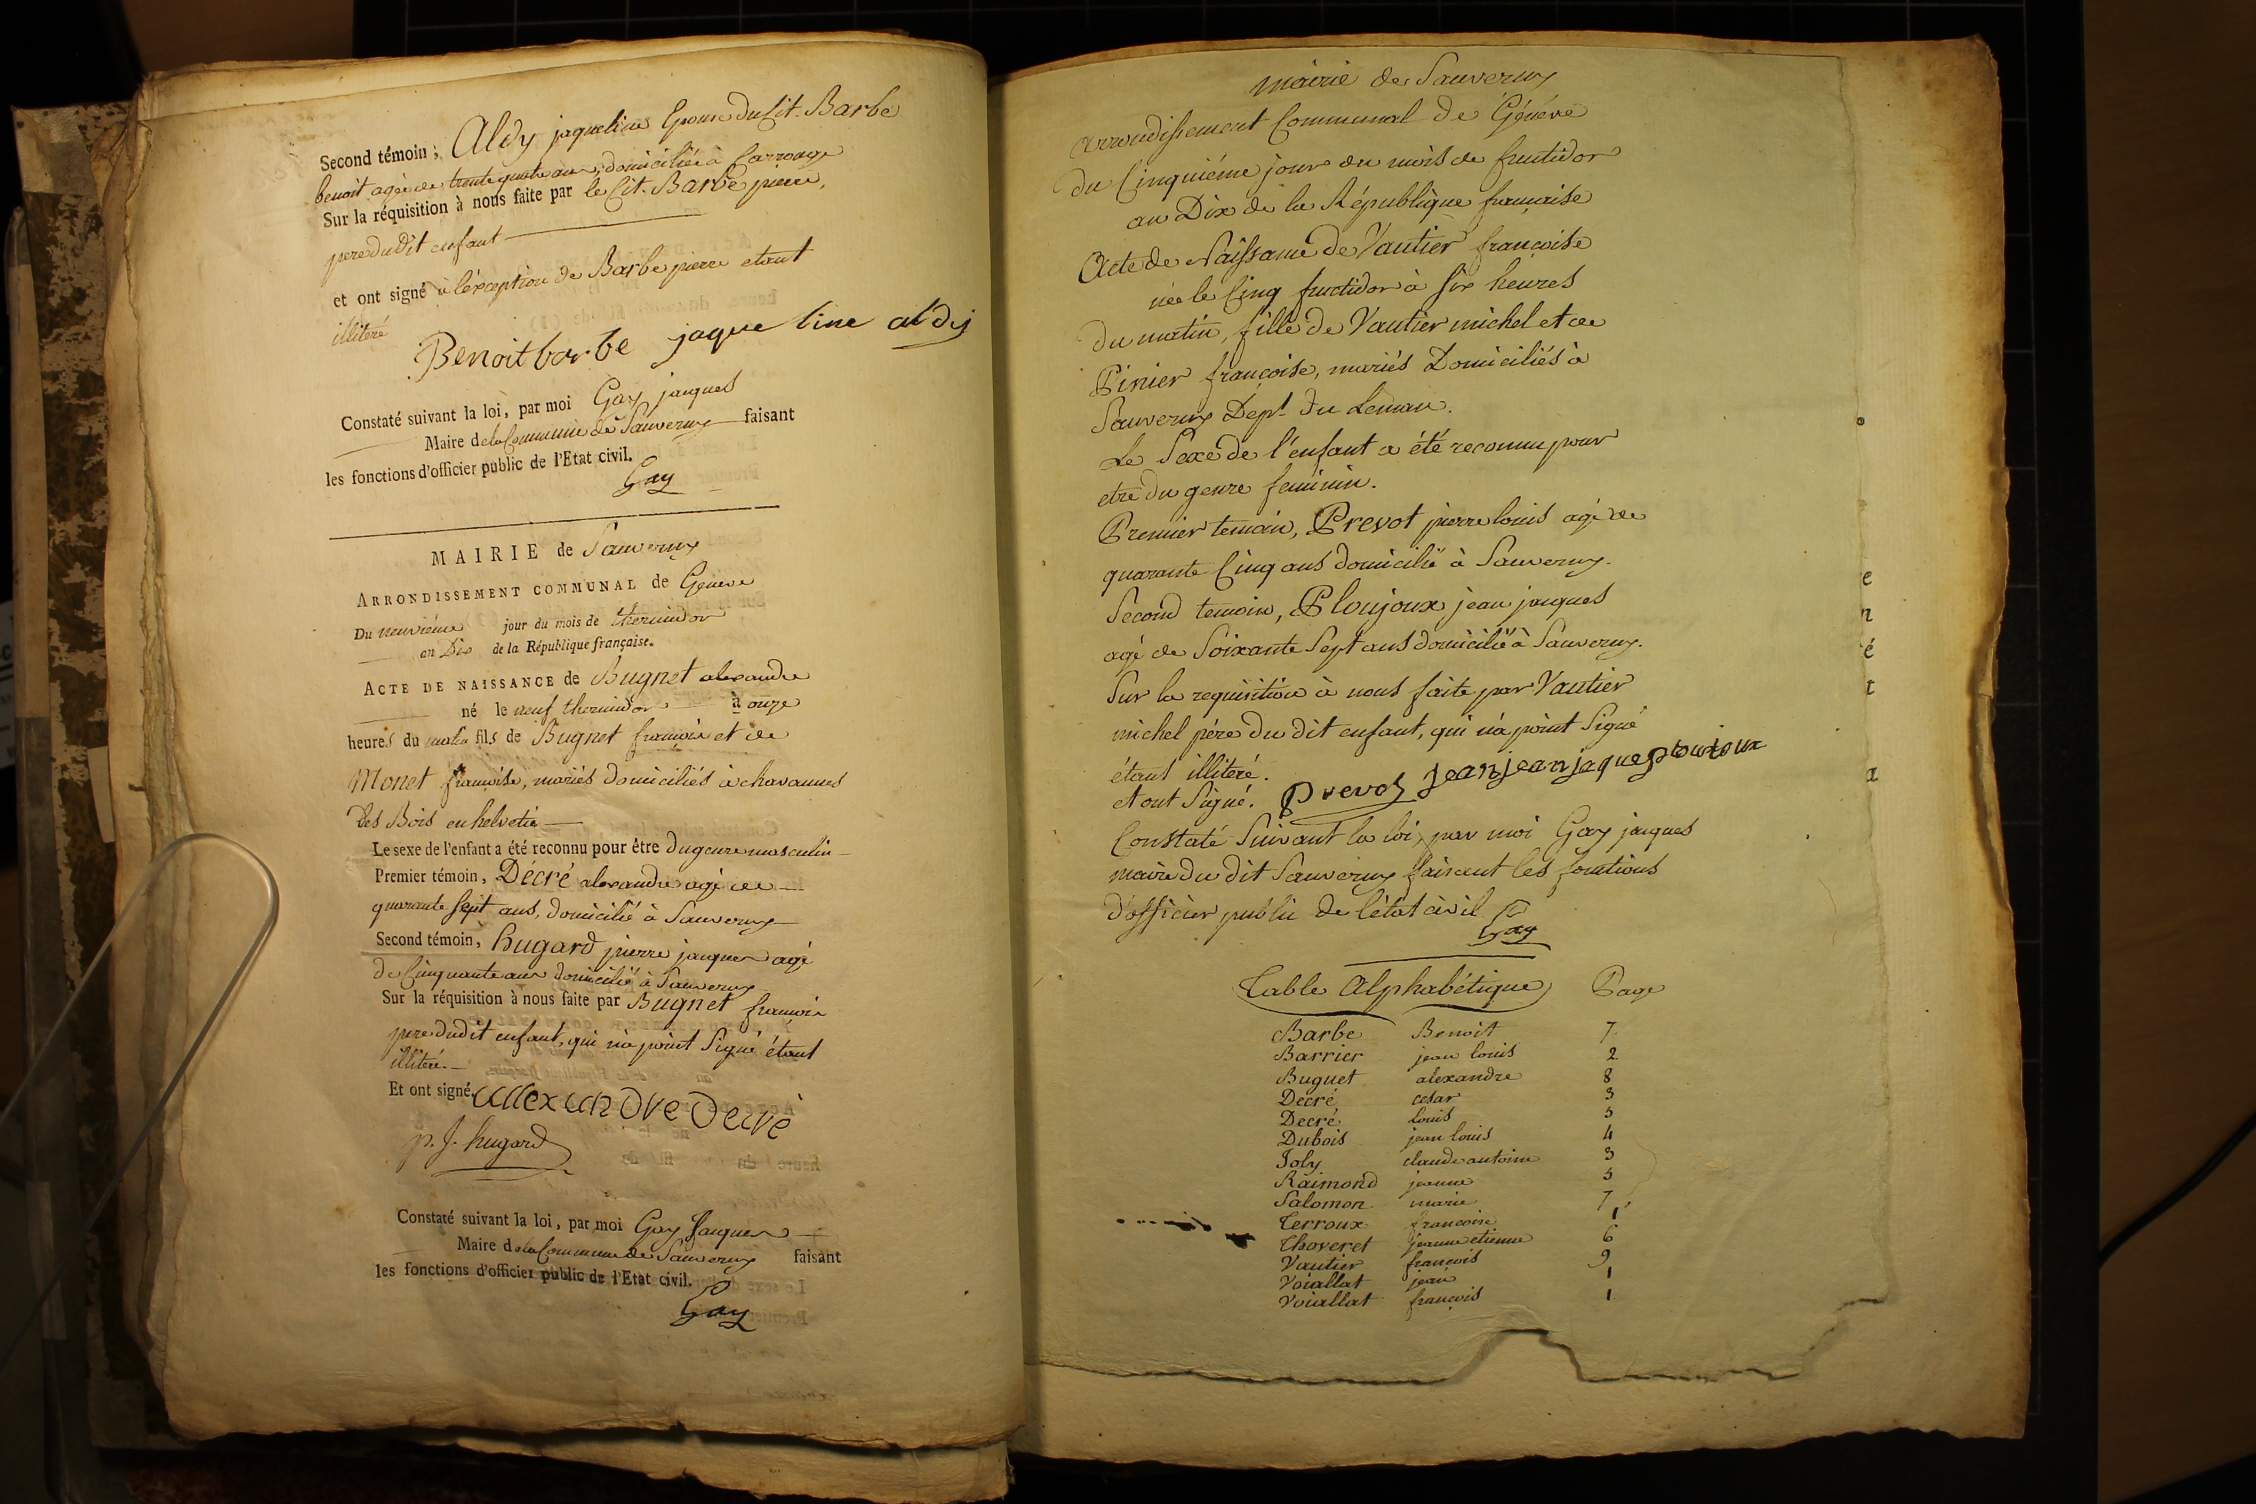 Second témoin, Aldy jaqueline Epouse du Cit. Barbe
benoit agée de trente quatre ans, domiciliée à Carrouge
Sur la réquisition à nous faite par le Cit. Barbe pierre,
pere du dit enfant
et ont signé à l'éxception de Barbe pierre etant
illiteré
Benoit barbe jaqueline aldy
Constaté suivant la loi, par moi Gay jaques
Maire de la Commune de Sauverny faisant
les fonctions d'officier public de l'Etat civil.
Gay
MAIRIE de Sauverny
ARRONDISSEMENT COMMUNAL de Genève
Du neuvième jour du mois de thermidor
an Dix de la République française.
ACTE DE NAISSANCE de Bugnet alexandre
né le neuf thermidor à onze
heures du matin fils de Bugnet françois et de
Monet françoise, mariés domiciliés à chavannes
des Bois en helvetie
Le sexe de l'enfant a été reconnu pour être du genre masculin
Premier témoin, Décré alexandre agé de
quarante sept ans, domicilié à Sauverny
Second témoin, hugard pierre jaques agé
de Cinquante ans domicilié à Sauverny
Sur la réquisition à nous faite par Bugnet francois
pere du dit enfant, qui n'a point Signé étant
illiteré.
Et ont signé. allexandre Decré
p. J. hugard
Constaté suivant la loi, par moi Gay Jaques
Maire de la Commune de Sauverny faisant
les fonctions d'officier public de l'Etat civil.
Gay
Mairie de Sauverny
arrondissement Communal de Génève
du Cinquième jour du mois de fructidor
an Dix de la République française
Acte de Naissance de Vautier françoise
née le Cinq fructidor à six heures
du matin, fille de Vautier michel et de
Pinier françoise, mariés Domiciliés à
Sauverny Dept. du Leman.
Le Sexe de l'énfant a été reconnu pour
etre du genre feminin.
Premier temoin, Prevot pierre louis agé de
quarante Cinq ans domicilié à Sauverny.
Second temoin, Ploujoux jean jacques
agé de Soixante Sept ans domicilié à Sauverny.
Sur la requisition à nous faite par Vautier
michel pére du dit enfant, qui n'a point Signé
étant illiteré.
et ont Signé. Prevot Jean jean jaque Ploujoux
Constaté Suivant la loi, par moi Gay jacques
maire du dit Sauverny faisant les fonctions
d'officier public de l'état civil
Gay
Table Alphabétique Page
Barbe Benoit 7.
Barrier jean louis 2
Buguet alexandre 8
Décré cesar 3
Decré louis 5
Dubois jean louis 4
Joly claude antoine 3
Raimond jeanne 5
Salomon marie 7
Terroux francoise 1
Thoveret jeanne etienne 6
Vautier françois 9
Voiallat jean 1
Voiallat françois 1
e
n
é
t
a